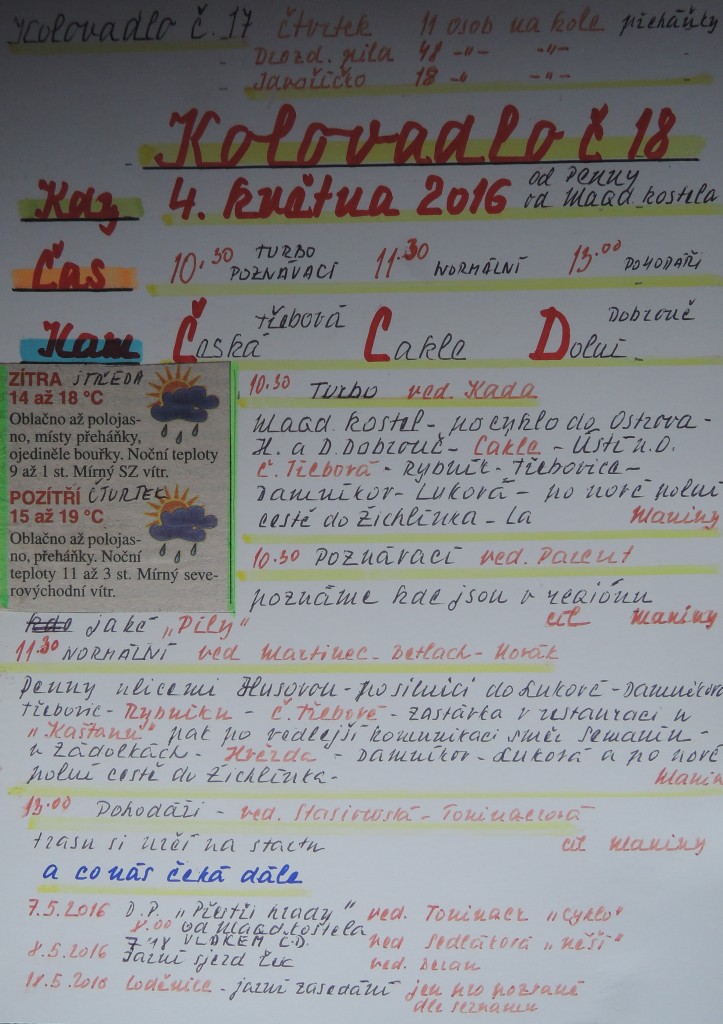 Kolovadlo č. 17 čtvrtek 11 osob na kole přeháňky
- Drozd. pila 48 -"- -"-
- Javoříčko 18 -"- -"- -
- Kolovadlo č 18
Kdy 4. května 2016 od Penny
od Maad. kostela
Čas 10.30 TURBO POZNÁVACÍ 11.30 NORMÁLNÍ 13.00 POHODÁŘI
Kam Česká Třebová Cakle Dolní Dobrouč
ZÍTRA STŘEDA
14 až 18 °C
Oblačno až polojas-
no, místy přeháňky,
ojediněle bouřky. Noční teploty
9 až 1 st. Mírný SZ vítr.
POZÍTŘÍ ČTVRTEK
15 až 19 °C
Oblačno až polojas-
no, přeháňky. Noční
teploty 11 až 3 st. Mírný seve-
rovýchodní vítr.
10.30 Turbo ved. Kada
Maad. kostel - po cyklo do Ostrova -
H. a D. Dobrouč - Cakle - Ústí n.O.
Č. Třebová - Rybník - Třebovice -
Damníkov - Luková - po nové polní
cestě do Žichlínka - La Maniny
10.30 Poznávací ved. Parent
poznáme kde jsou v regiónu
kde jaké „Pily" cíl Maniny
11.30 NORMÁLNÍ ved Martinec - Detlach - Horák
Penny ulicemi Husovou - po silnici do Lukové - Damníkova
Třebovic - Rybníku - Č. Třebové - zastávka v restauraci u
„Kaštanu" pak po vedlejší komunikaci směr Semanín -
v Zádolkách - Hvězda - Damníkov - Luková a po nové
polní cestě do Žichlínka - Manin
13.00 Pohodáři - ved. Stasiowská - Tomnaczová
trasu si určí na startu cíl Maniny
a co nás čeká dále
7.5.2016 D.P. „Přes tři hrady" ved. Tominacz „Cyklo"
8.00 od Maad. kostela
7.48 VLAKEM Č.D. ved Sedláková „Pěší"
8.5.2016 Jarní sjezd řek ved. Beran
18.5.2016 Loděnice - jarní zasedání jen pro pozvané
dle seznamu